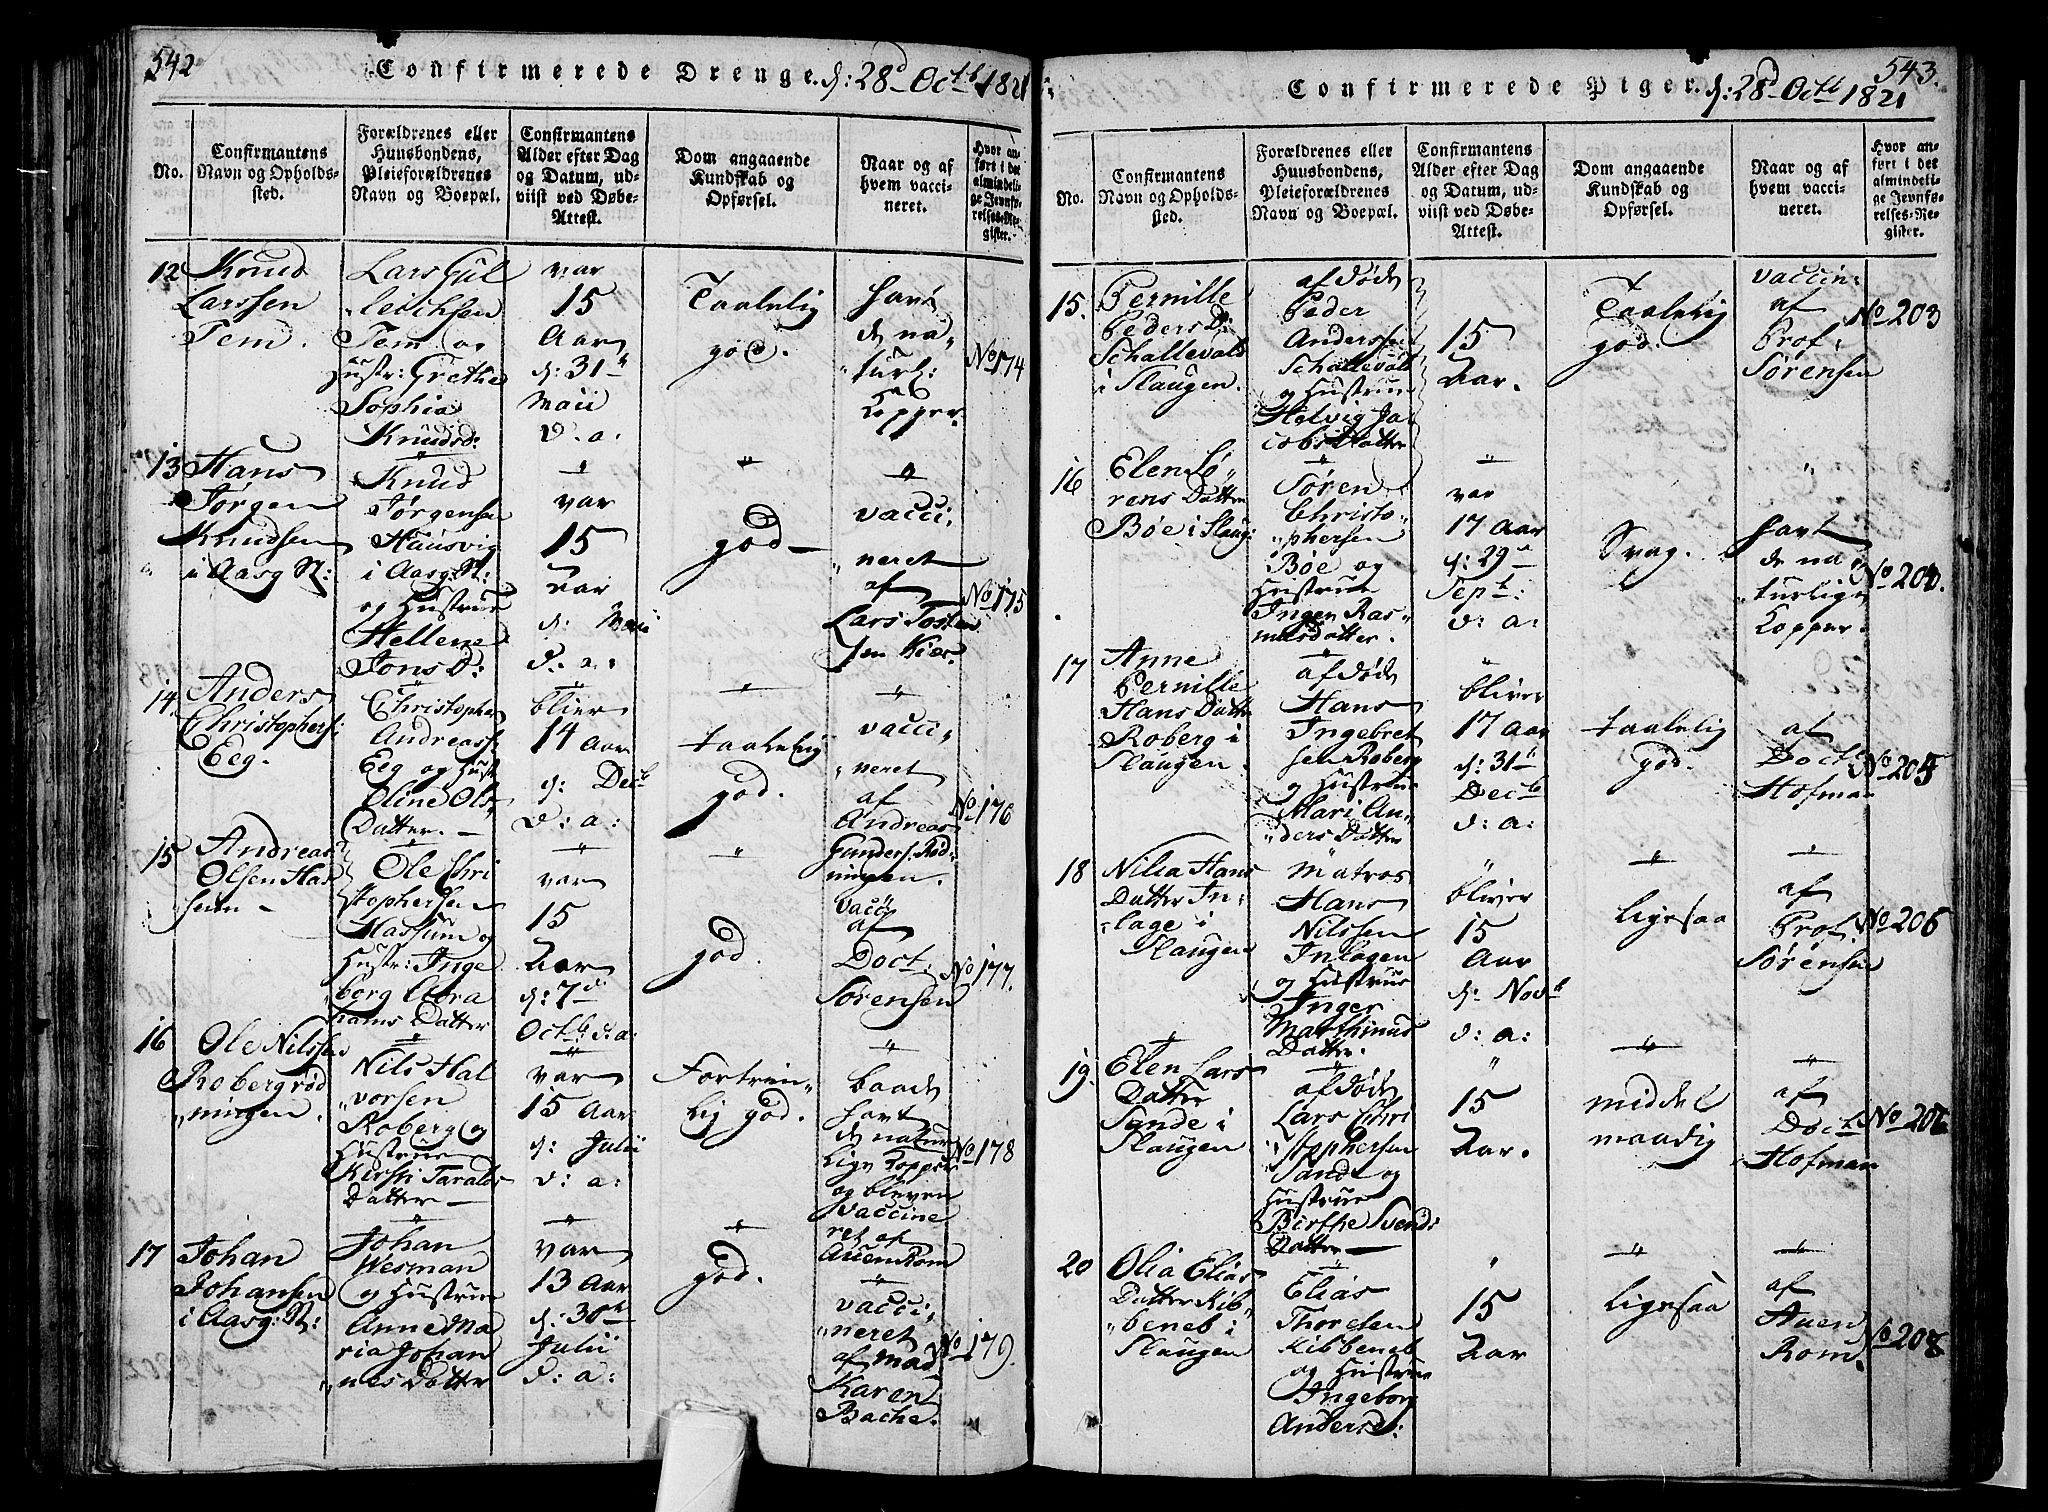 542
Confirmerede Drenge. d: 28d Octb 1821
No.
Confirmantens
Navn og Opholds-
sted.
Forældrenes eller
Huusbondens,
Pleieforældrenes
Navn og Boepæl.
Confirmantens
Alder efter Dag
og Datum, ud-
viist ved Døbe-
Attest.
Dom angaaende
Kundskab og
Opførsel.
Naar og af
hvem vacci-
neret.
Hvor an-
ført i det
almindeli-
ge Jevnfø-
relses-Re-
gister.
12
Knud
Larssen
Tem.
Lars Gul
Tem og
Hustr: Grethe
Sophia
Knudsd:
var
15
Aar
d: 31
Maii
d. a:
Taalelig
god.
havt
de na„
turl:
Kopper.
No 174
13
Hans
Jørgen
Knudsen
i Aasg St:
Knud
Jørgensen
Hausvig
i Aasg: St:
og Hustrue
Hellene
Jons D:
var
15
Aar
d: Maii
d. a:
god
vacci„
„neret
af
Lars Tosten
sen Kiær.
No 175
14.
Anders
Christophers:
Eeg.
Christopher
Andreass:
Eeg og Hustr
Eline Ols„
Datter.
blier
14 Aar
d: Decb
d: a:
taalelig
god.
vacci„
„neret
af
Andreas
Gunders. Rød„
ningen.
No 176
15
Andreas
Olsen Has
sum
Ole Chri
stophersen
Hassum og
Hustr: Inge
borg Abra
hams Datter
var
15
Aar
d: 7de
Octb d: a:
god.
vacc:
af
Doct:
Sørensen
No 177.
16
Ole Nilssen
Roberg rød
„ningen.
Nils Hal
„vorsen
Roberg og
Hustrue
Kirsti Taralds
Datter
var
15 Aar
d: Julii
d: a:
Fortrin„
lig god.
baade
havt
de natur
lige Kopper
og bleven
vaccine
ret af
Auen Rom
No 178
17
Johan
Johansen
i Aasg: St:
Johan
Wesman
og Hustrue
Anne Ma
ria Johan
„nes Datter
var
13 Aar
d: 30te
Julii
d: a:
god.
vacci„
„neret
af Mad
Karen
Bache.
No 179.
543.
Confirmerede Piger. d: 28d Octb 1821
No.
Confirmantens
Navn og Opholds-
sted.
Forældrenes eller
Huusbondens,
Pleieforældrenes
Navn og Boepæl.
Confirmantens
Alder efter Dag
og Datum, ud-
viist ved Døbe-
Attest.
Dom angaaende
Kundskab og
Opførsel.
Naar og af
hvem vacci-
neret.
Hvor an-
ført i det
almindeli-
ge Jevnfø-
relses-Re-
gister.
15.
Pernille
Peders D:
Schallevald
i Slaugen.
afdøde
Peder
Anderssen
Schallevald
og Hustrue
Helvig Ja„
cobs Datter
15
Aar.
Taalelig
god.
vaccin:
af
Prof:
Sørensen
No 203
16
Elen Sø„
rens Datter
Bøe i Slaug:
Søren
Christo„
„phersen
Bøe og
Hustrue
Inger Ras„
musdatter.
var
17 Aar
d: 29
Sept:
d: a:
Svag.
havt
de na„
turlige
Kopper.
No 204.
17
Anne
Pernille
Hans Datter
Roberg i
Slaugen.
afdøde
Hans
Ingebret
sen Roberg
og Hustrue
Mari An„
„ders Datter
bliver
17 Aar
d: 31
Decb
d: a:
taalelig
god.
af
Doct:
Hofman
No 205
18
Nilia Hans
Datter In„
lage i
Slaugen
Matros
Hans
Nilssen
Inlagen
og Hustrue
Inger
Marthinus
Datter.
bliver
15
Aar
d: Novb
d: a:
ligesaa
af
Prof.
Sørensen
No 206
19.
Elen Lars
Datter
Sande i
Slaugen
afdøde
Lars Chri
stophersen
Sande og
Hustrue
Birthe Svend:
Datter
15
Aar.
middel
maadig
af
Doct:
Hofman
No 207
20
Olia Elias
Datter Kib„
„beneb i
Slaugen
Elias
Thoresen
Kibbeneb
og Hustrue
Ingeborg
Andersd:
15
Aar
ligesaa
af
Auen
Rom.
No 208